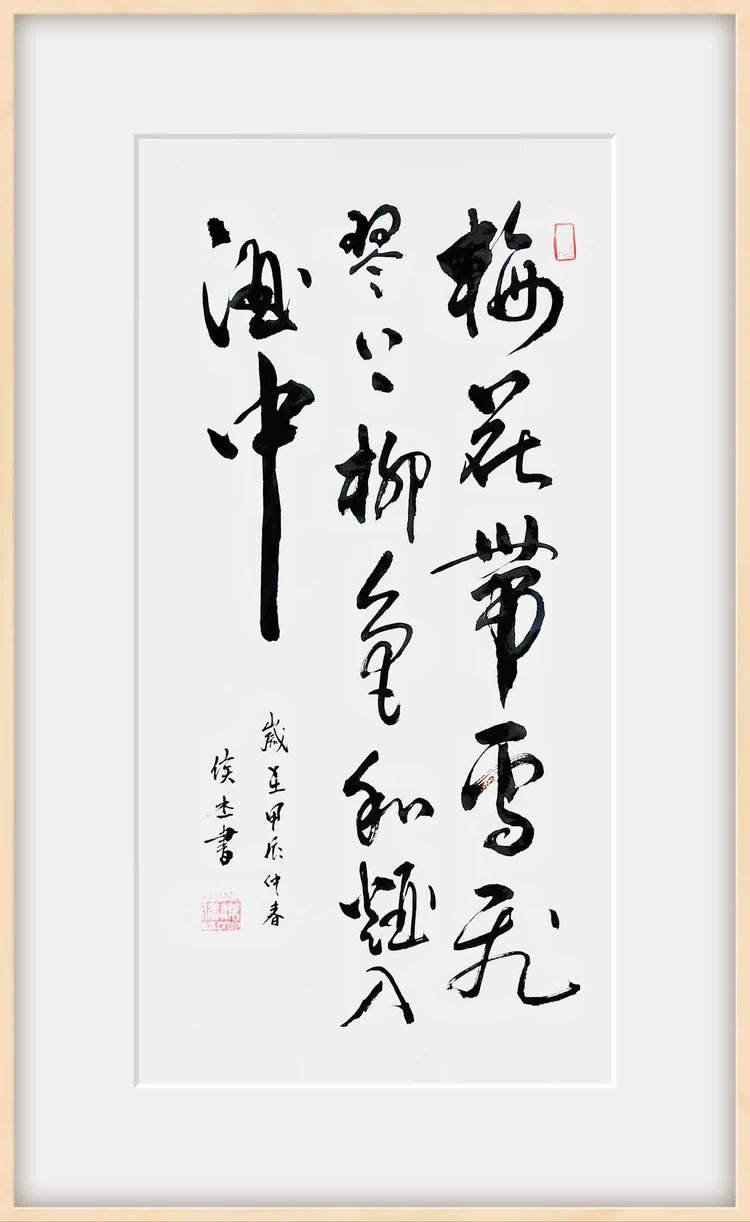 梅花带雪飞
琴上柳色和烟入
酒中
歲在甲辰仲春
侯杰書